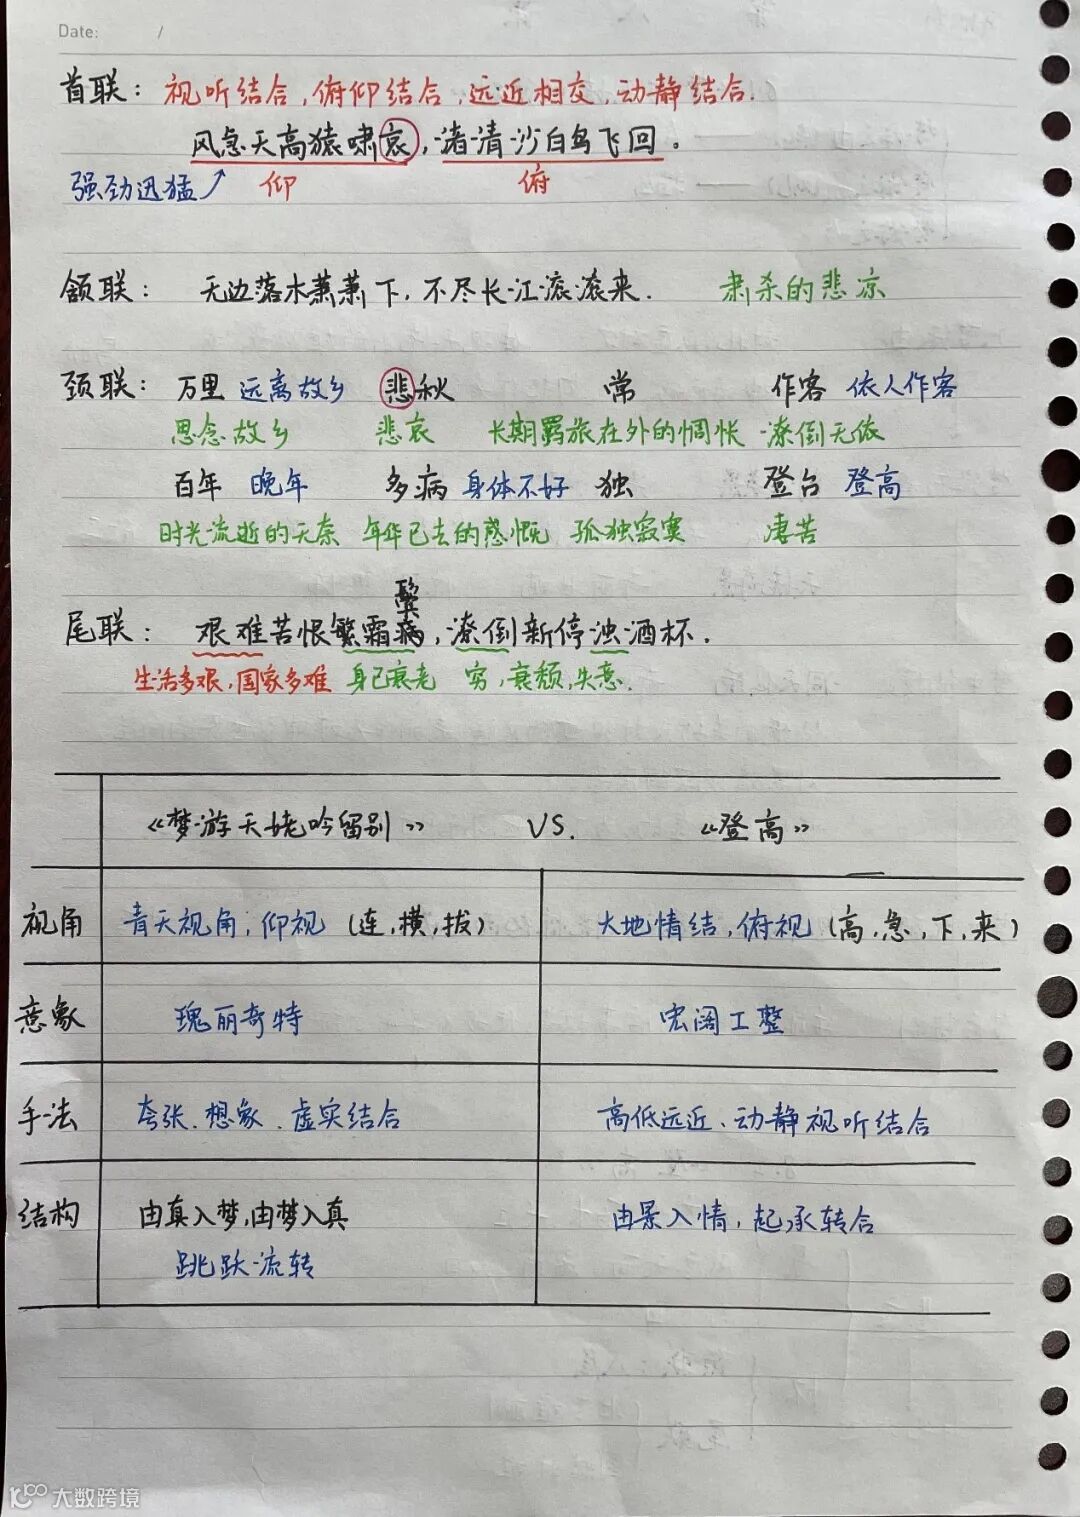 Date: /
首联: 视听结合,俯仰结合,远近相交,动静结合.
风急天高猿啸哀,渚清沙白鸟飞回。
强劲迅猛↗ 仰 俯
颔联: 无边落木萧萧下,不尽长江滚滚来. 肃杀的悲凉
颈联: 万里 远离故乡 悲秋 常 作客 依人作客
思念故乡 悲哀 长期羁旅在外的惆怅 潦倒无依
百年 晚年 多病 身体不好 独 登台 登高
时光流逝的无奈 年华已去的感慨 孤独寂寞 凄苦
鬓
尾联: 艰难苦恨繁霜,潦倒新停浊酒杯.
生活多艰,国家多难 身已衰老 穷,衰颓,失意.
《梦游天姥吟留别》 VS. 《登高》
视角 青天视角,仰视 (连,横,拔) 大地情结,俯视 (高,急,下,来)
意象 瑰丽奇特 宏阔工整
手法 夸张.想象.虚实结合 高低远近、动静视听结合
结构 由真入梦,由梦入真 由景入情,起承转合
跳跃流转
大数跨境